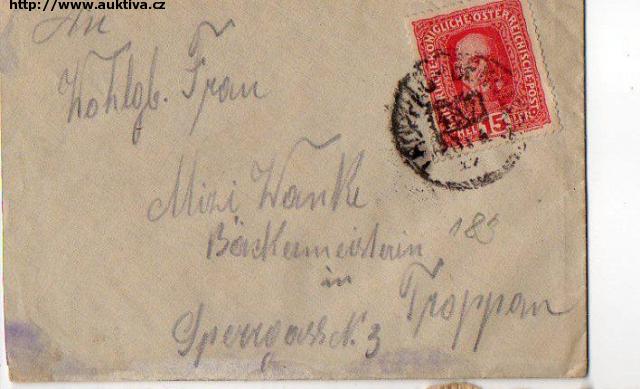 http://www.auktiva.cz
An
Wohlgb. Frau
KAISERLICHE KÖNIGLICHE ÖSTERREICHISCHE POST
15
Mizi Wanke
Bäckermeisterin
185
in
Troppau
Sperrgasse N. 3